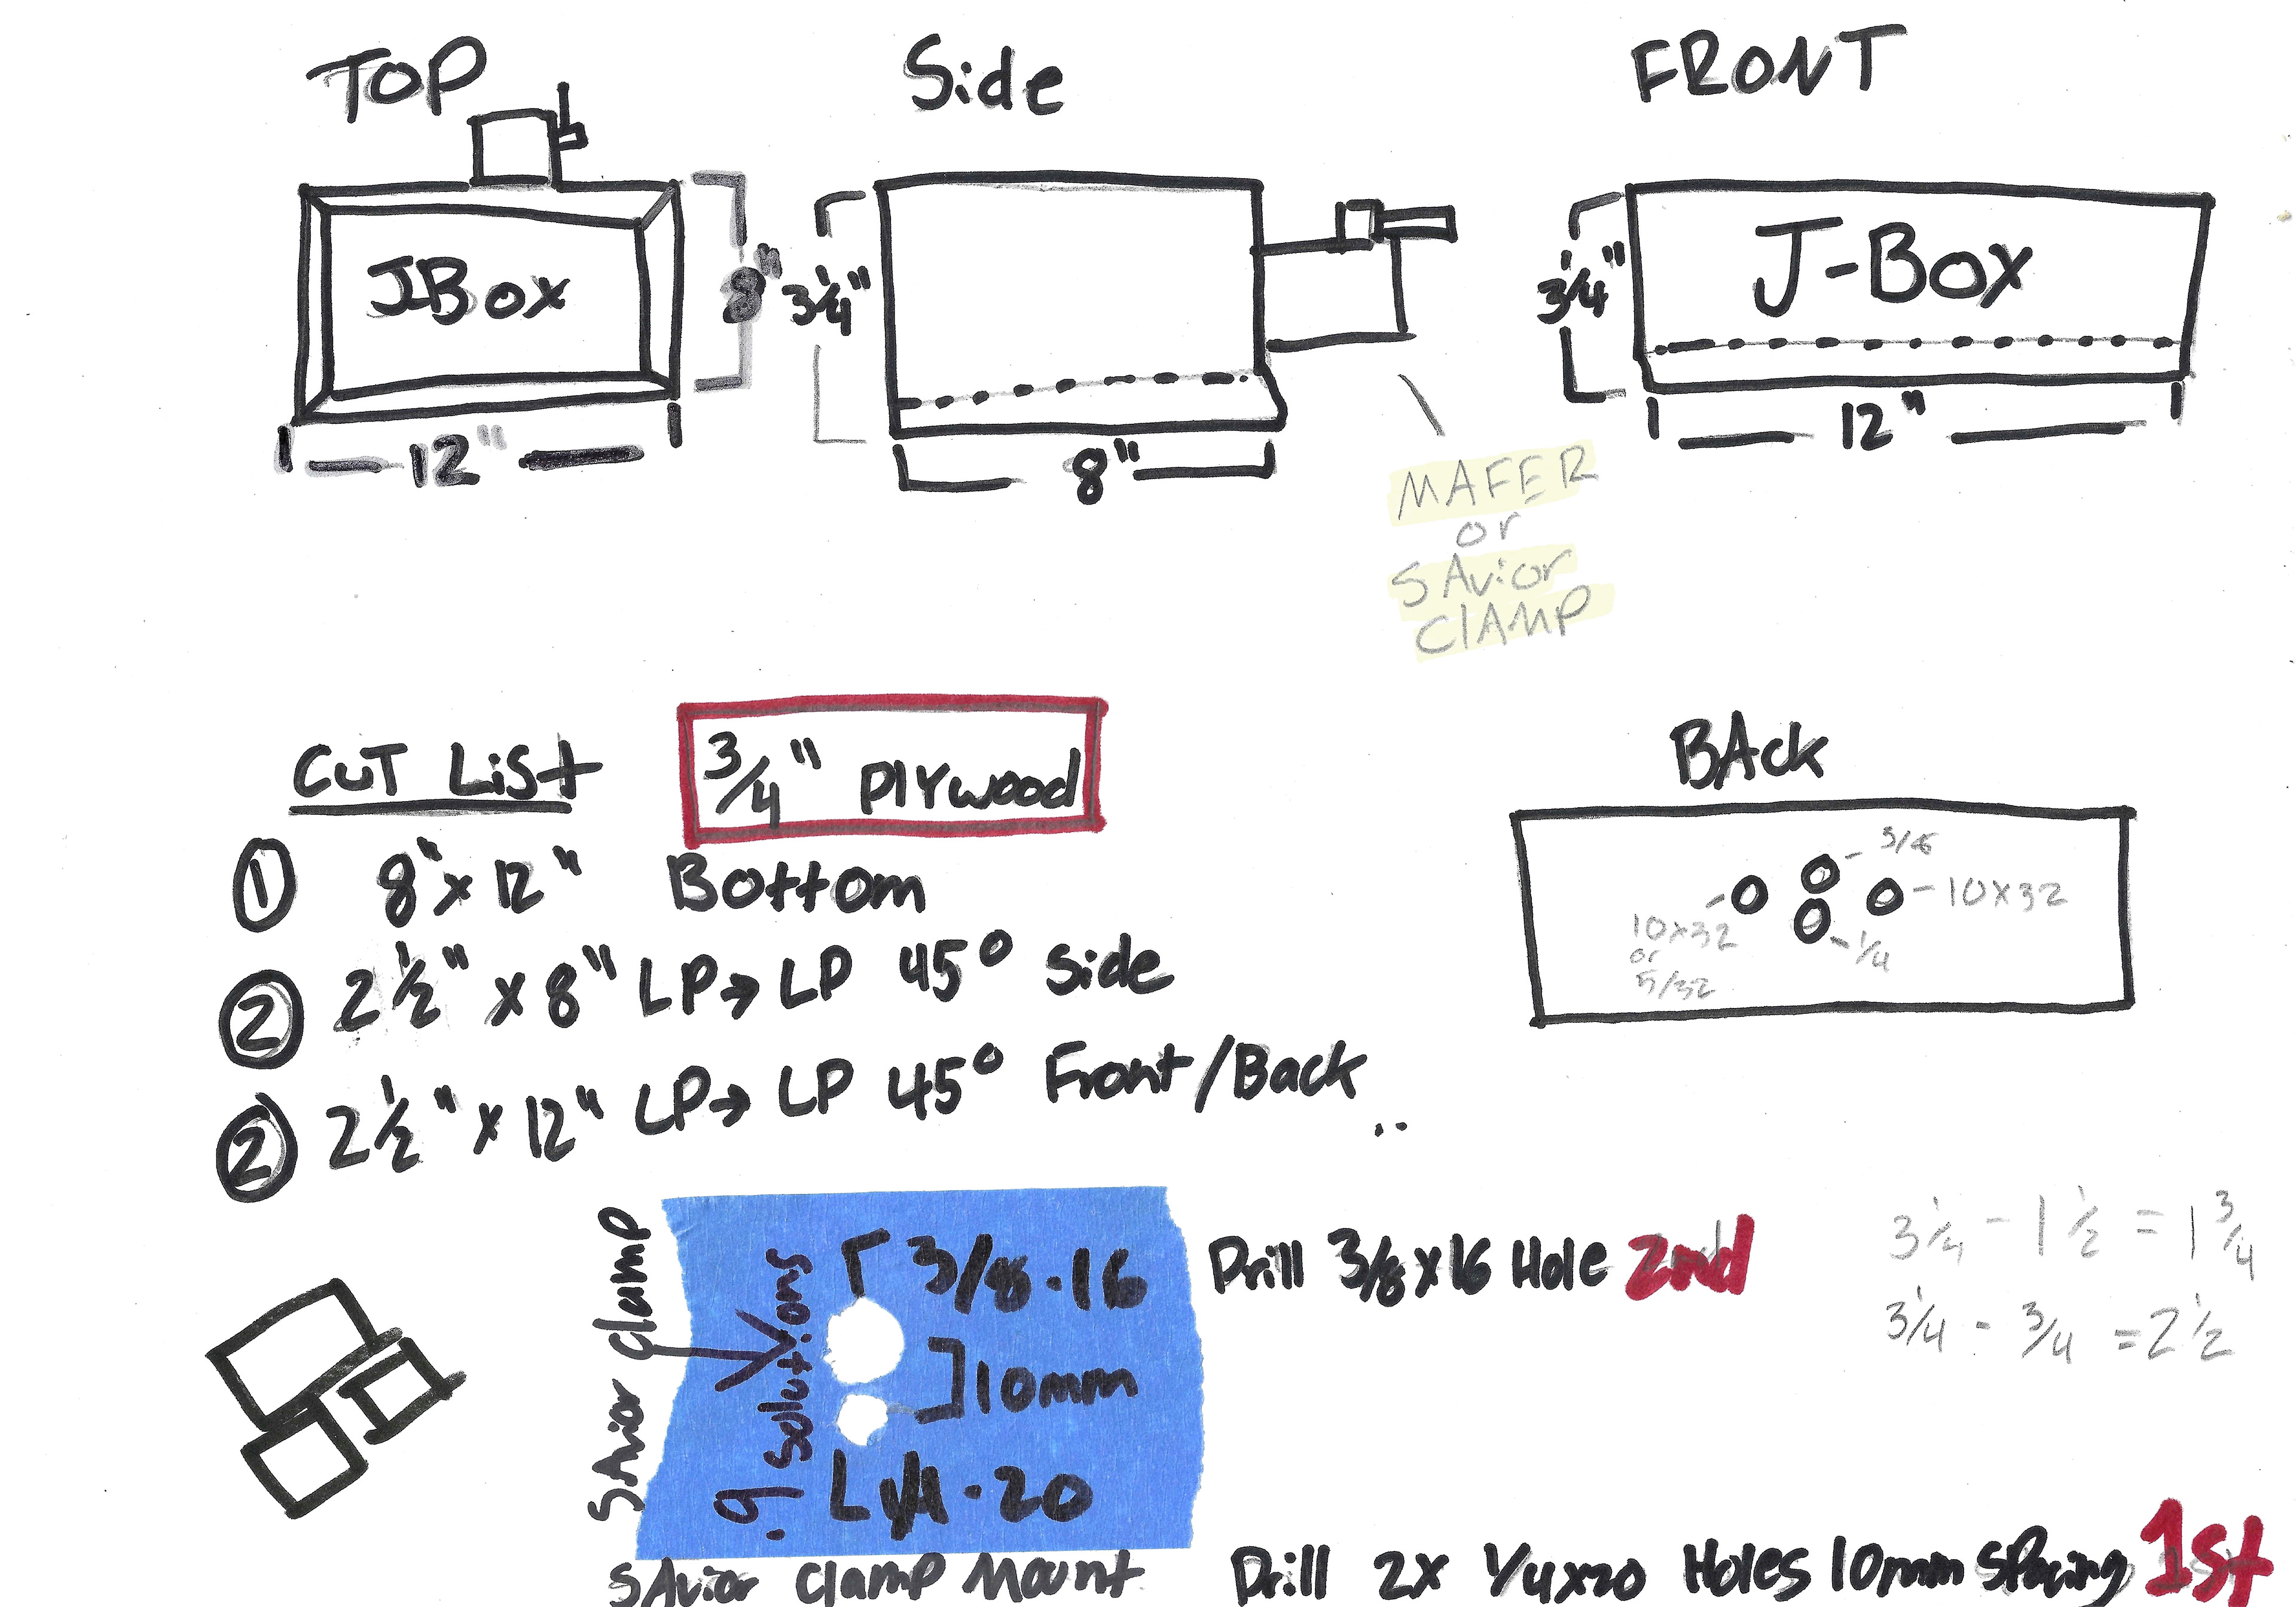 TOP
JBox
8"
12"
Side
3 1/4"
8"
MAFER
or
SAvior
ClAMP
FRONT
J-Box
3 1/4"
12"
CUT LiSt
3/4" PlYwood
① 8" x 12" Bottom
② 2 1/2" x 8" LP→LP 45° Side
② 2 1/2" x 12" LP→LP 45° Front/Back
BAck
10x32
or
5/32
10x32
1/4
SAvior Clamp
.9 solutions
3/8-16
10mm
1/4-20
SAvior Clamp Mount
Drill 3/8x16 Hole 2nd
3 1/4 - 1 1/2 = 1 3/4
3 1/4 - 3/4 = 2 1/2
Drill 2x 1/4x20 Holes 10mm Spacing 1st